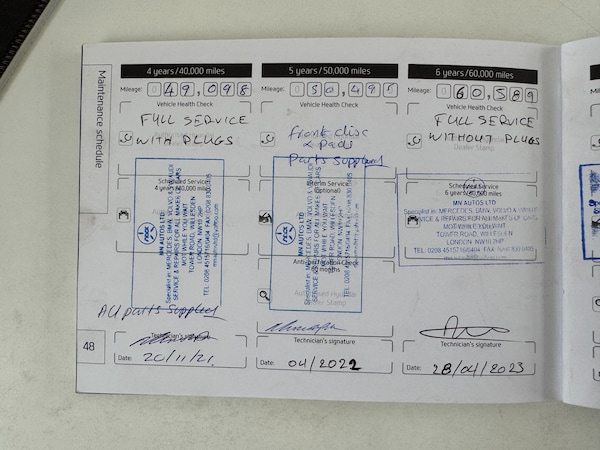 Maintenance schedule
48
4 years/40,000 miles
Mileage: 0 49,098
Vehicle Health Check
FULL SERVICE
WITH PLUGS
Scheduled Service
4 years/40,000 miles
MN AUTOS LTD
Specialist in: MERCEDES, BMW, VOLVO &
SERVICE & REPAIRS FOR ALL MAKES OF CARS
MOT WHILE YOU WAIT
TOWER ROAD, WILLESDEN
LONDON NW10 2HP
All parts Supplied
Technician's signature
Date: 20/11/21.
5 years/50,000 miles
Mileage:
Vehicle Health Check
front disc
& pads
parts supplied
Interim Service
(Optional)
MN AUTOS LTD
Specialist in: MERCEDES, BMW, VOLVO &
MOT WHILE YOU WAIT
TOWER ROAD, WILLESDEN
LONDON NW10 2HP
Anti-perforation Check
Technician's signature
Date: 04/2022
6 years/60,000 miles
Mileage: 0 60,589
Vehicle Health Check
FULL SERVICE
WITHOUT PLUGS
Dealer Stamp
Scheduled Service
6 years/60,000 miles
MN AUTOS LTD
Specialist in: MERCEDES, BMW, VOLVO &
MOT WHILE YOU WAIT
TOWER ROAD, WILLESDEN
LONDON NW10 2HP
Technician's signature
Date: 28/04/2023